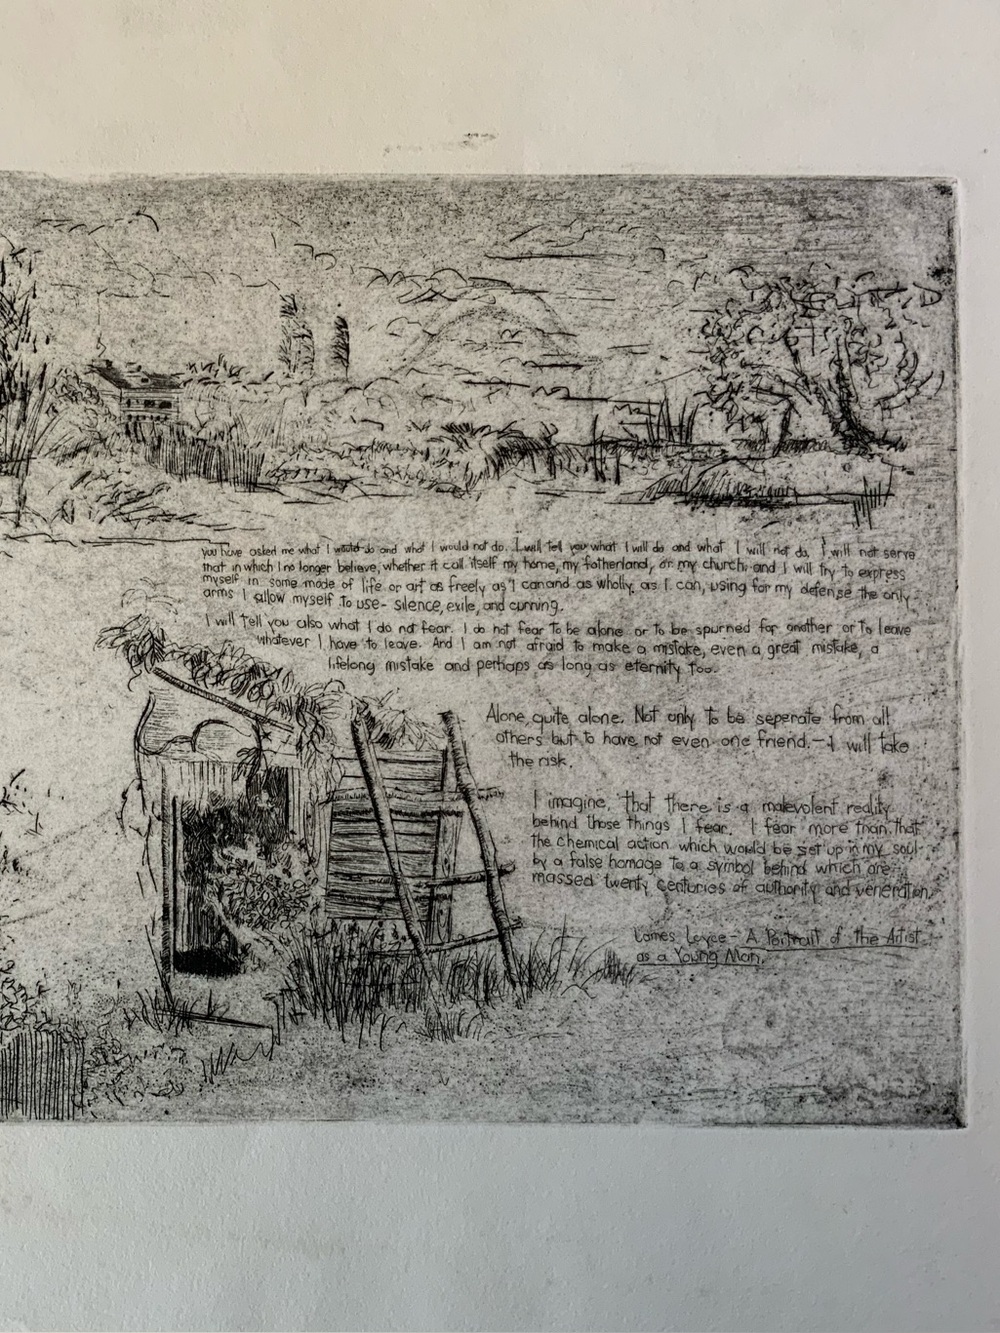 you have asked me what I would do and what I would not do. I will tell you what I will do and what I will not do, I will not serve
that in which I no longer believe, whether it call itself my home, my fatherland, or my church; and I will try to express
myself in some mode of life or art as freely as I can and as wholly as I can, using for my defense the only
arms I allow myself to use- silence, exile, and cunning.
I will tell you also what I do not fear. I do not fear to be alone or to be spurned for another or to leave
whatever I have to leave. And I am not afraid to make a mistake, even a great mistake, a
lifelong mistake and perhaps as long as eternity too.
Alone, quite alone. Not only to be seperate from all
others but to have not even one friend.-I will take
the risk.
I imagine, that there is a malevolent reality
behind those things I fear. I fear more than that
the chemical action which would be set up in my soul
by a false homage to a symbol behind which are
massed twenty centuries of authority and veneration.
James Joyce- A Portrait of the Artist
as a Young Man.